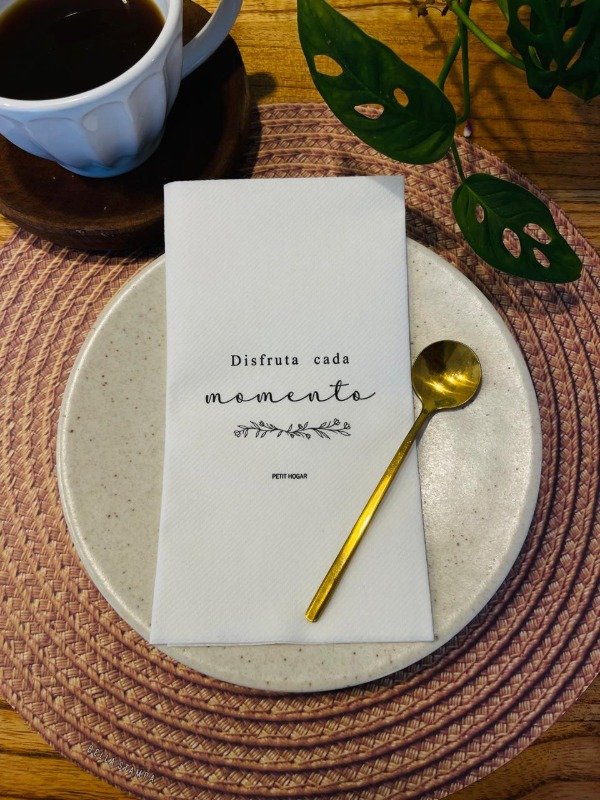 Disfruta cada
momento
PETIT HOGAR